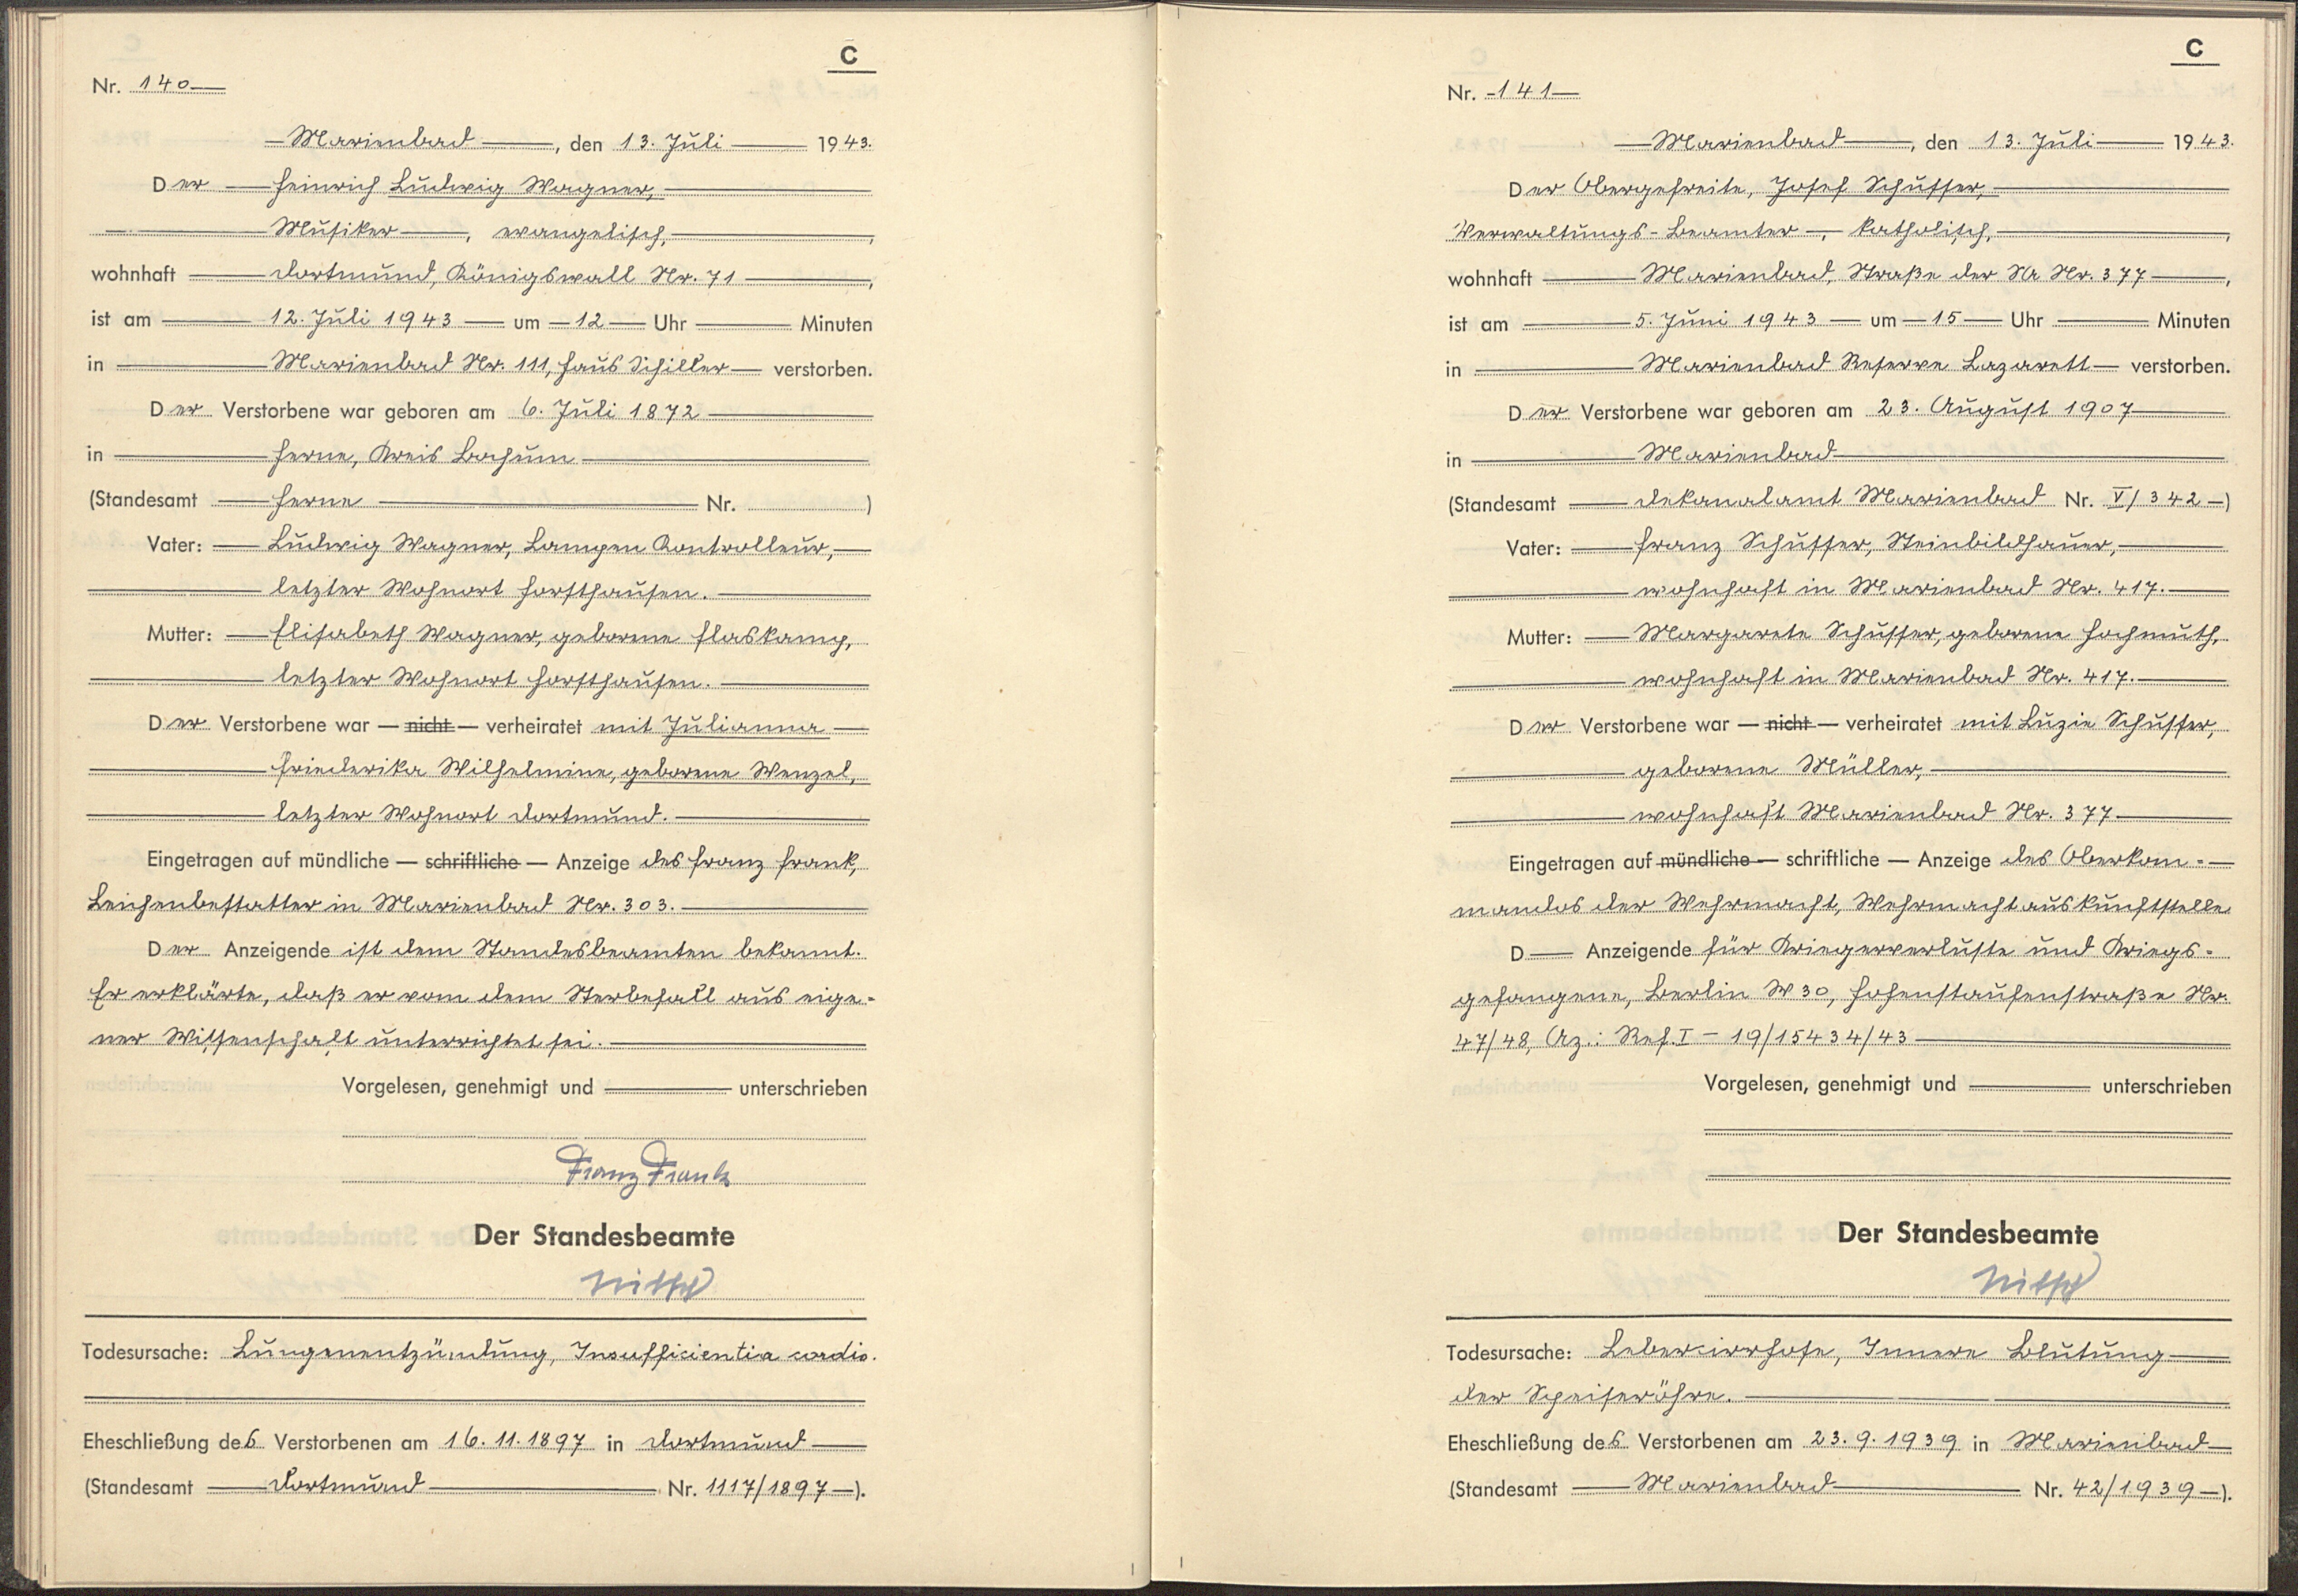 C
Nr. 140
Marienbad, den 13. Juli 1943.
Der Heinrich Ludwig Wagner,
Musiker, evangelisch,
wohnhaft Dortmund, Königswall Nr. 71,
ist am 12. Juli 1943 um 12 Uhr Minuten
in Marienbad Nr. 111, Haus Schiller verstorben.
Der Verstorbene war geboren am 6. Juli 1872
in Herne, Kreis Bochum
(Standesamt Herne Nr. )
Vater: Ludwig Wagner, Lampen Kontrolleur,
letzter Wohnort Horsthausen.
Mutter: Elisabeth Wagner, geborene Flaskamp,
letzter Wohnort Horsthausen.
Der Verstorbene war — nicht — verheiratet mit Julianna
Friederika Wilhelmine, geborene Wenzel,
letzter Wohnort Dortmund.
Eingetragen auf mündliche — schriftliche — Anzeige des Franz Frank,
Leichenbestatter in Marienbad Nr. 303.
Der Anzeigende ist dem Standesbeamten bekannt.
Er erklärte, daß er von dem Sterbefall aus eige-
ner Wissenschaft unterrichtet sei.
Vorgelesen, genehmigt und unterschrieben
Franz Frank
Der Standesbeamte
Todesursache: Lungenentzündung, Insufficientia cordis.
Eheschließung des Verstorbenen am 16.11.1897 in Dortmund
(Standesamt Dortmund Nr. 1117/1897).
C
Nr. 141
Marienbad, den 13. Juli 1943.
Der Obergefreite, Josef Schusser,
Verwaltungs-Beamter, katholisch,
wohnhaft Marienbad, Straße der SA Nr. 377,
ist am 5. Juni 1943 um 15 Uhr Minuten
in Marienbad Reserve Lazarett verstorben.
Der Verstorbene war geboren am 23. August 1907
in Marienbad
(Standesamt Dekanalamt Marienbad Nr. V/342)
Vater: Franz Schusser, Steinbildhauer,
wohnhaft in Marienbad Nr. 417.
Mutter: Margarete Schusser, geborene Hochmuth,
wohnhaft in Marienbad Nr. 417.
Der Verstorbene war — nicht — verheiratet mit Luzie Schusser,
geborene Müller,
wohnhaft Marienbad Nr. 377
Eingetragen auf mündliche — schriftliche — Anzeige des Oberkom-
mandos der Wehrmacht, Wehrmachtauskunftstelle
D— Anzeigende für Kriegerverluste und Kriegs-
gefangene, Berlin W 30, Hohenstaufenstraße Nr.
47/48, Az.: Ref. I – 19/15434/43
Vorgelesen, genehmigt und unterschrieben
Der Standesbeamte
Todesursache: Lebercirrhose, Innere Blutung
der Speiseröhre.
Eheschließung des Verstorbenen am 23.9.1939 in Marienbad
(Standesamt Marienbad Nr. 42/1939).